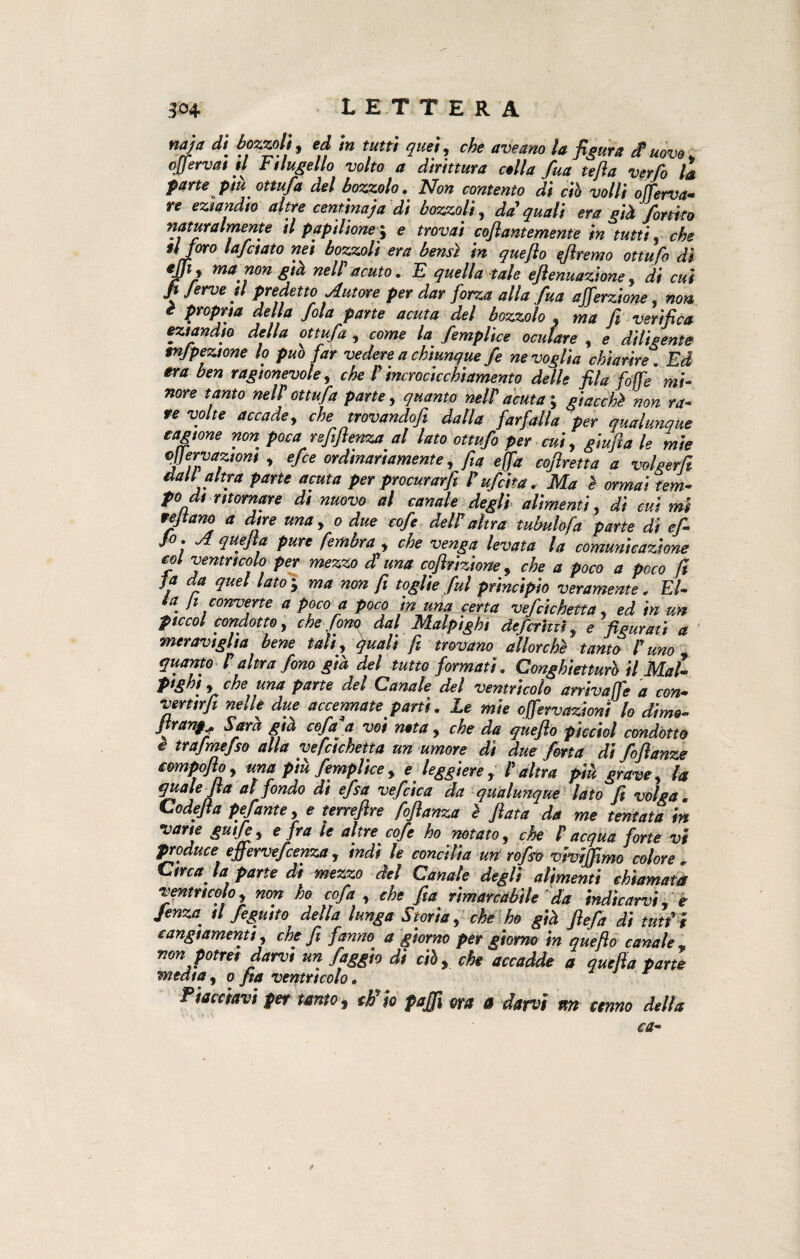 304 LETTERA
naja di bozzoli, ed in tutti quei, che aveano la figura d' uovo,
osservai il Filugello volto a dirittura colla sua testa verso la
parte più ottusa del bozzolo. Non contento di ciò volli osserva-
re eziandio altre centinaja di bozzoli, da' quali era già sortito
naturalmente il papilione; e trovai costantemente in tutti, che
il foro lasciato nei bozzoli era bensì in questo estremo ottuso di
essi, ma non già nell' acuto. E quella tale estenuazione, di cui
si serve il predetto Autore per dar forza alla sua asserzione, non
è propria della sola parte acuta del bozzolo, ma si verifica
eziandio della ottusa, come la semplice oculare, e diligente
inspezione lo può far vedere a chiunque se ne voglia chiarire. Ed
era ben ragionevole, che l' incrocicchiamento delle fila fosse mi-
nore tanto nell' ottusa parte, quanto nell' acuta; giacchè non ra-
re volte accade, che trovandosi dalla farfalla per qualunque
cagione non poca resistenza al lato ottuso per cui, giusta le mie
osservazioni, esce ordinariamente, sia essa costretta a volgersi
dall' altra parte acuta per procurarsi l' uscita. Ma è ormai tem-
po di ritornare di nuovo al canale degli alimenti, di cui mi
restano a dire una, o due cose dell' altra tubulosa parte di es-
so. A questa pure sembra, che venga levata la comunicazione
col ventricolo per mezzo d' una costrizione, che a poco a poco si
fa da quel lato; ma non si toglie sul principio veramente. El-
la si converte a poco a poco in una certa vescichetta, ed in un
piccol condotto, che sono dal Malpighi descritti, e figurati a
meraviglia bene tali, quali si trovano allorchè tanto l' uno,
quanto l' altra sono già del tutto formati. Conghietturò il Mal-
pighi, che una parte del Canale del ventricolo arrivasse a con-
vertirsi nelle due accennate parti. Le mie osservazioni lo dimo-
strano. Sarà già cosa a voi nota, che da questo picciol condotto
è trasmesso alla vescichetta un umore di due sorta di sostanze
composto, una più semplice, e leggiere, l' altra più grave, la
quale sta al fondo di essa vescica da qualunque lato si volga.
Codesta pesante, e terrestre sostanza è stata da me tentata in
varie guise, e fra le altre cose ho notato, che l' acqua forte vi
produce effervescenza, indi le concilia un rosso vivissimo colore.
Circa la parte di mezzo del Canale degli alimenti chiamata
ventricolo, non ho cosa, che sia rimarcabile da indicarvi, e
senza il seguito della lunga Storia, che ho già stesa di tutt' i
cangiamenti, che si fanno a giorno per giorno in questo canale,
non potrei darvi un saggio di ciò, che accadde a questa parte
media, o sia ventricolo.
Piacciavi per tanto, ch' io passi ora a darvi un cenno della
ca-